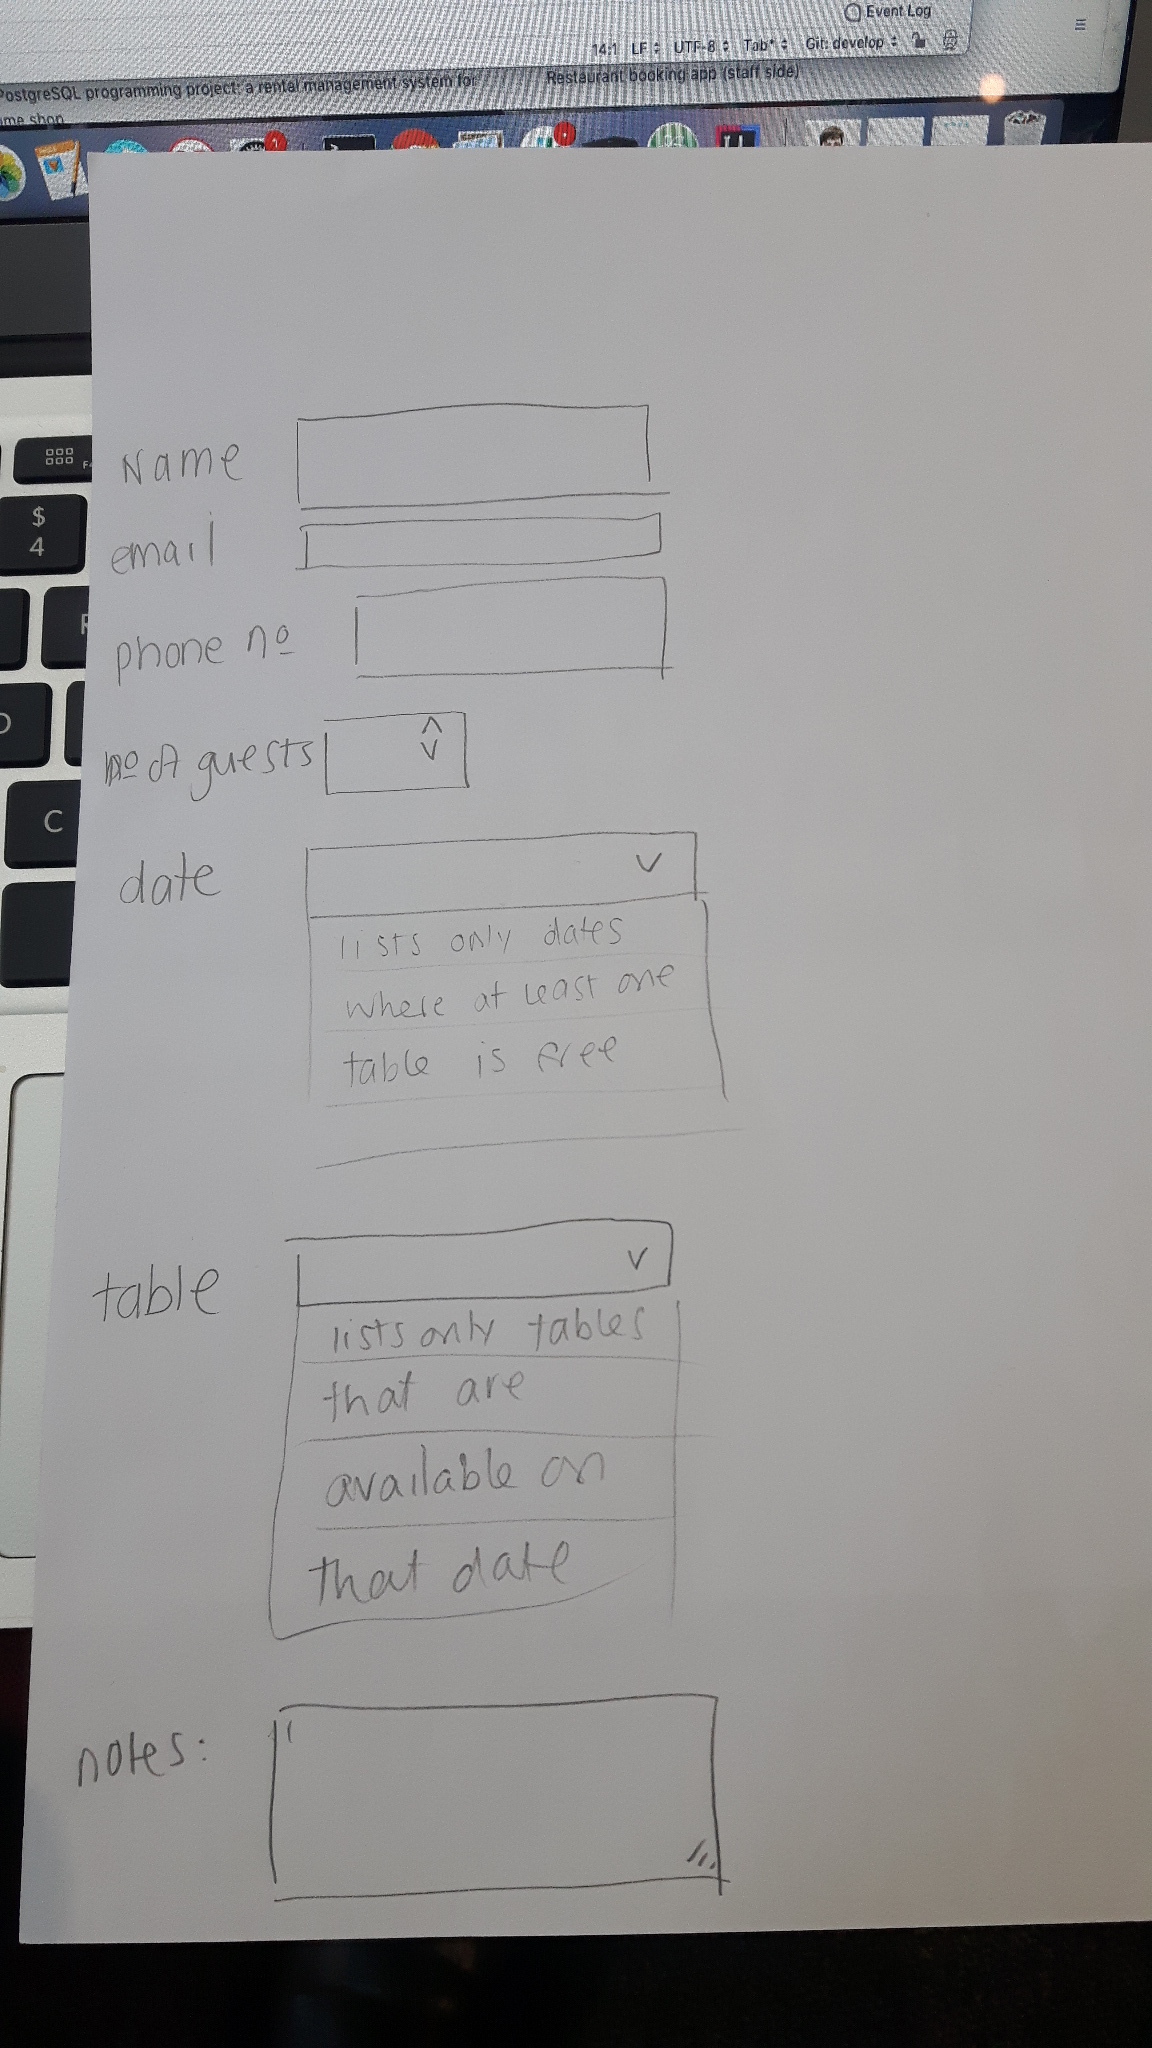 Event Log
14:1 LF UTF-8 Tab* Git: develop
PostgreSQL programming project: a rental management system for
Restaurant booking app (staff side)
shop
F
$
4
C
Name
email
phone nº
nº of guests
date
lists only dates
where at least one
table is free
table
lists only tables
that are
available on
that date
notes: